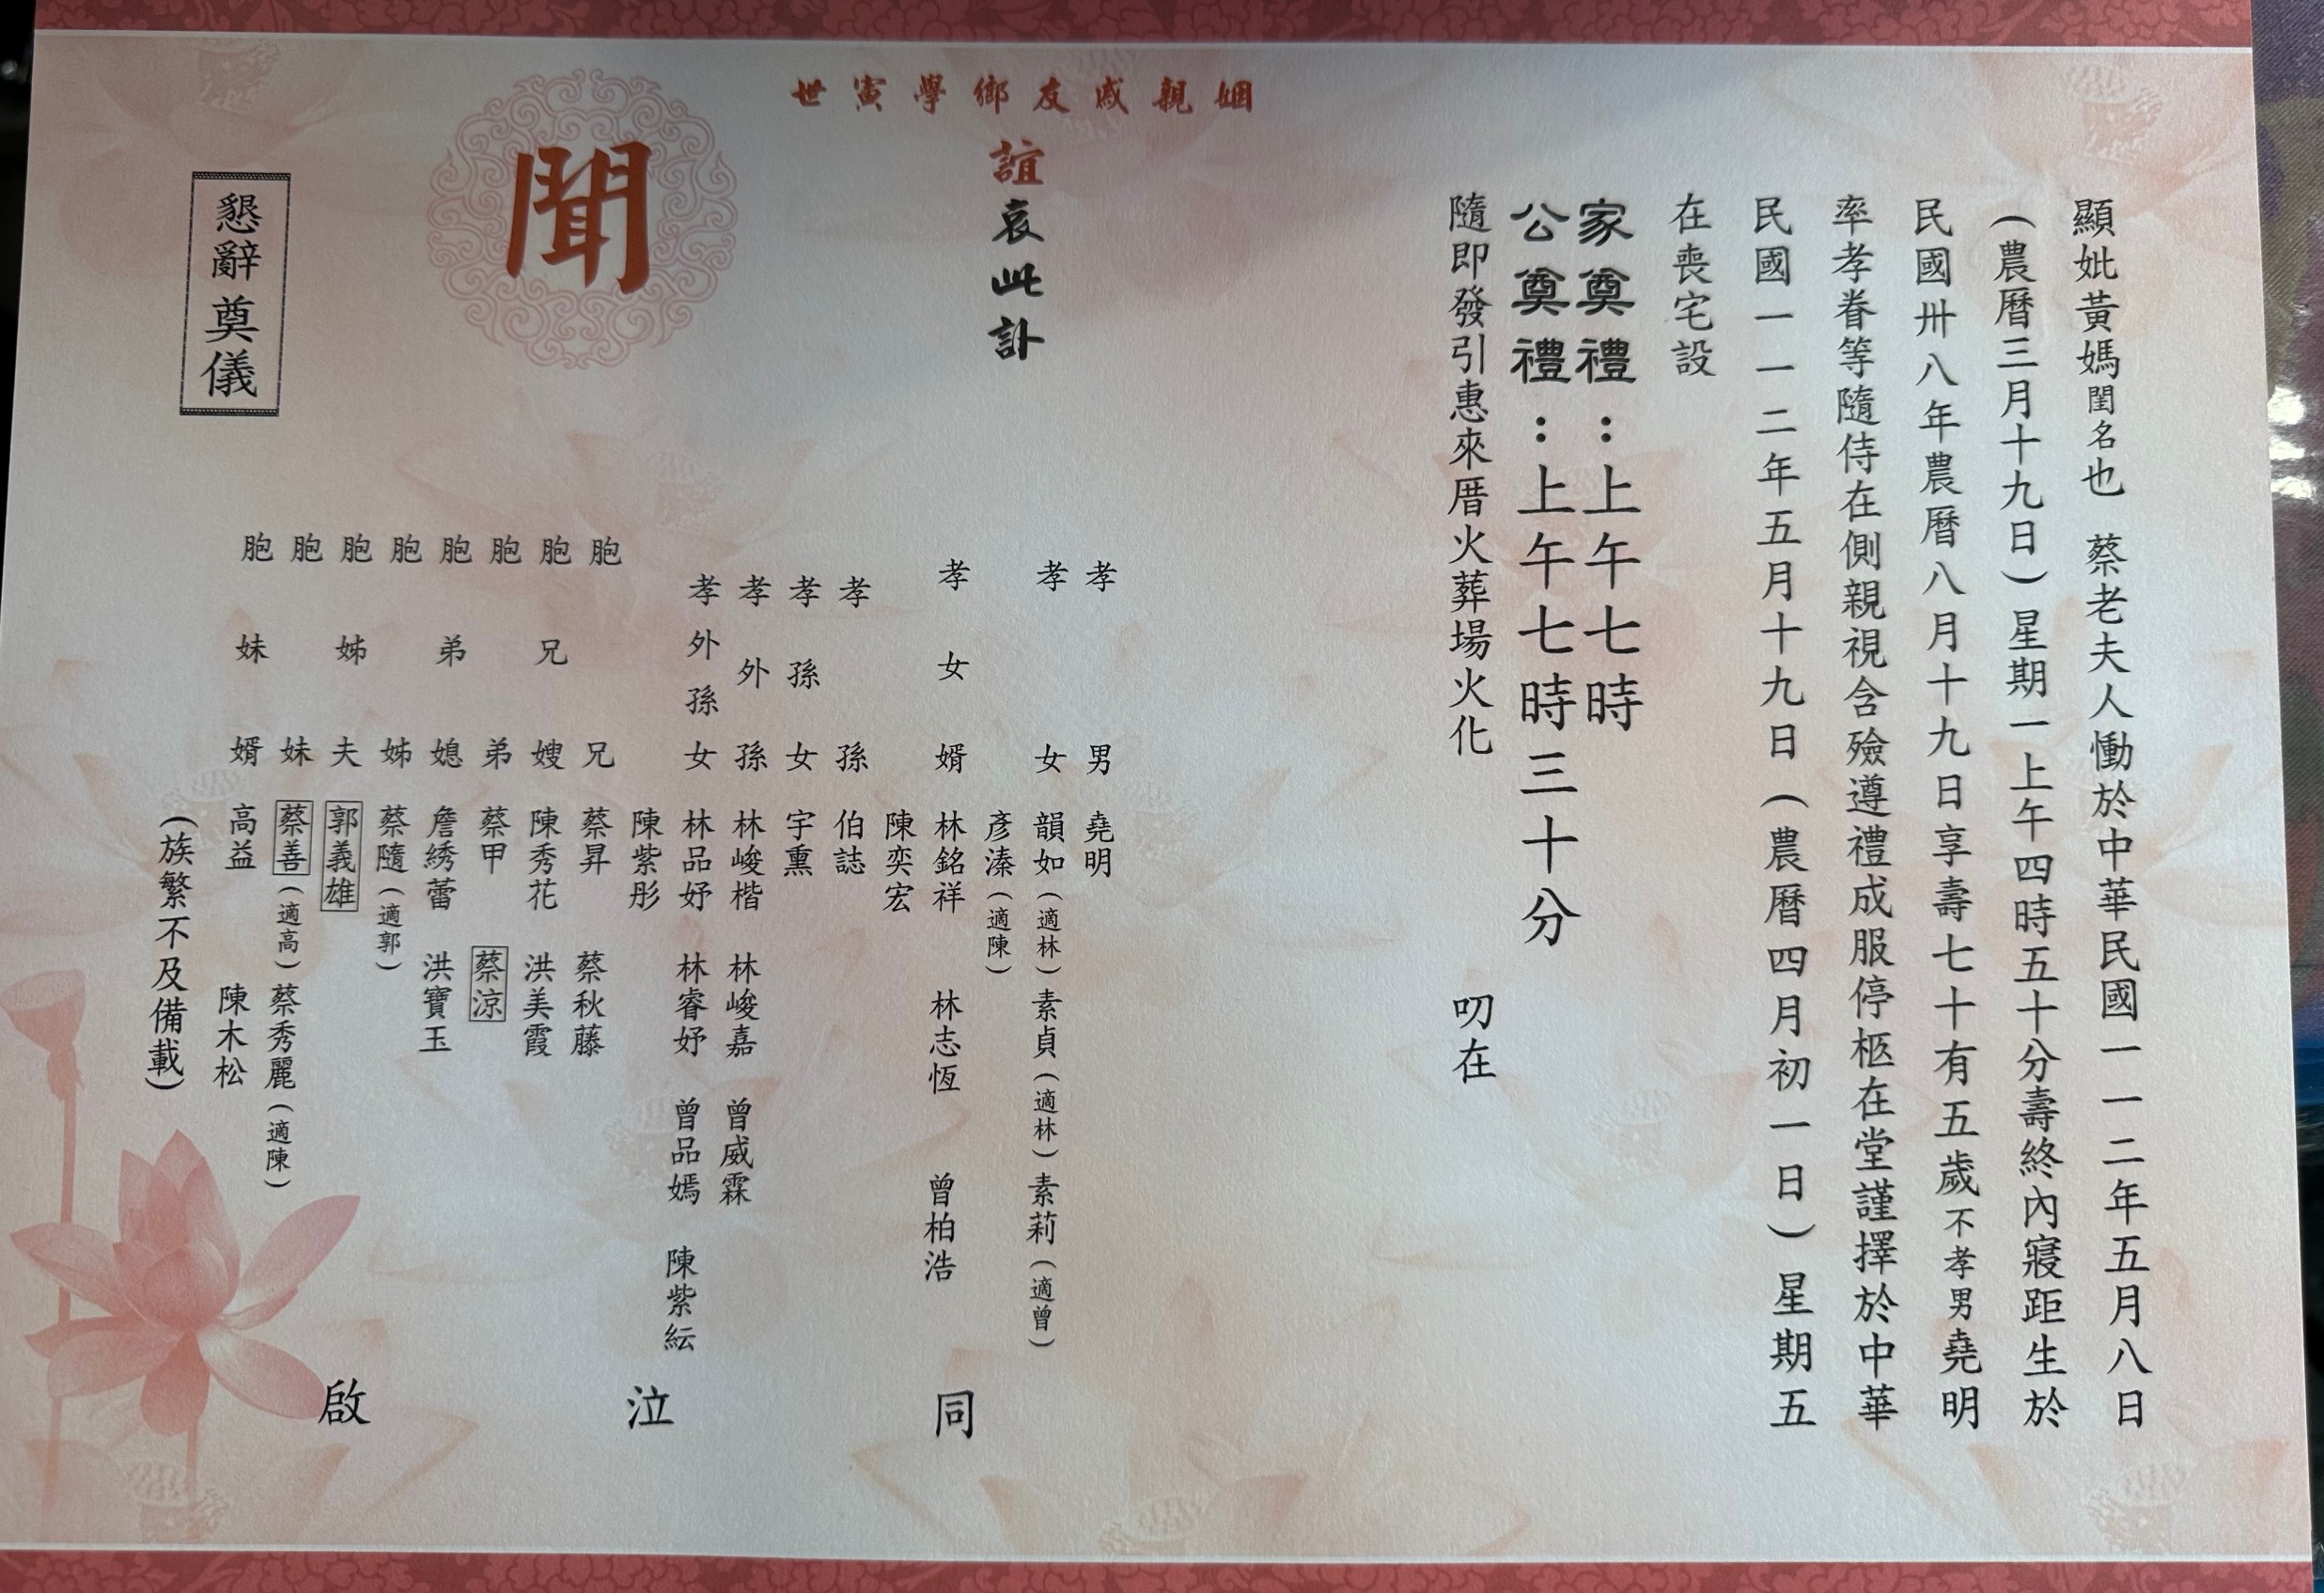 顯妣黃媽閨名也 蔡老夫人慟於中華民國一一二年五月八日
(農曆三月十九日)星期一上午四時五十分壽終內寢距生於
民國卅八年農曆八月十九日享壽七十有五歲不孝男堯明
率孝眷等隨侍在側親視含殮遵禮成服停柩在堂謹擇於中華
民國一一二年五月十九日(農曆四月初一日)星期五
在喪宅設
家奠禮：上午七時
公奠禮：上午七時三十分
隨即發引惠來厝火葬場火化 叨在
姻親戚友鄉學寅世
誼哀此訃
聞
孝男 堯明
孝女 韻如(適林)素貞(適林)素莉(適曾)
彥溱(適陳)
孝女婿 林銘祥 林志恆 曾柏浩
陳奕宏
孝孫 伯誌
孝孫女 宇熏
孝外孫 林峻楷 林峻嘉 曾威霖
孝外孫女 林品妤 林睿妤 曾品嫣 陳紫紜
陳紫彤
胞兄 蔡昇 蔡秋藤
胞兄嫂 陳秀花 洪美霞
胞弟 蔡甲 蔡涼
胞弟媳 詹綉蕾 洪寶玉
胞姊 蔡隨(適郭)
胞姊夫 郭義雄
胞妹 蔡善(適高)蔡秀麗(適陳)
胞妹婿 高益 陳木松
(族繁不及備載)
同泣啟
懇辭奠儀